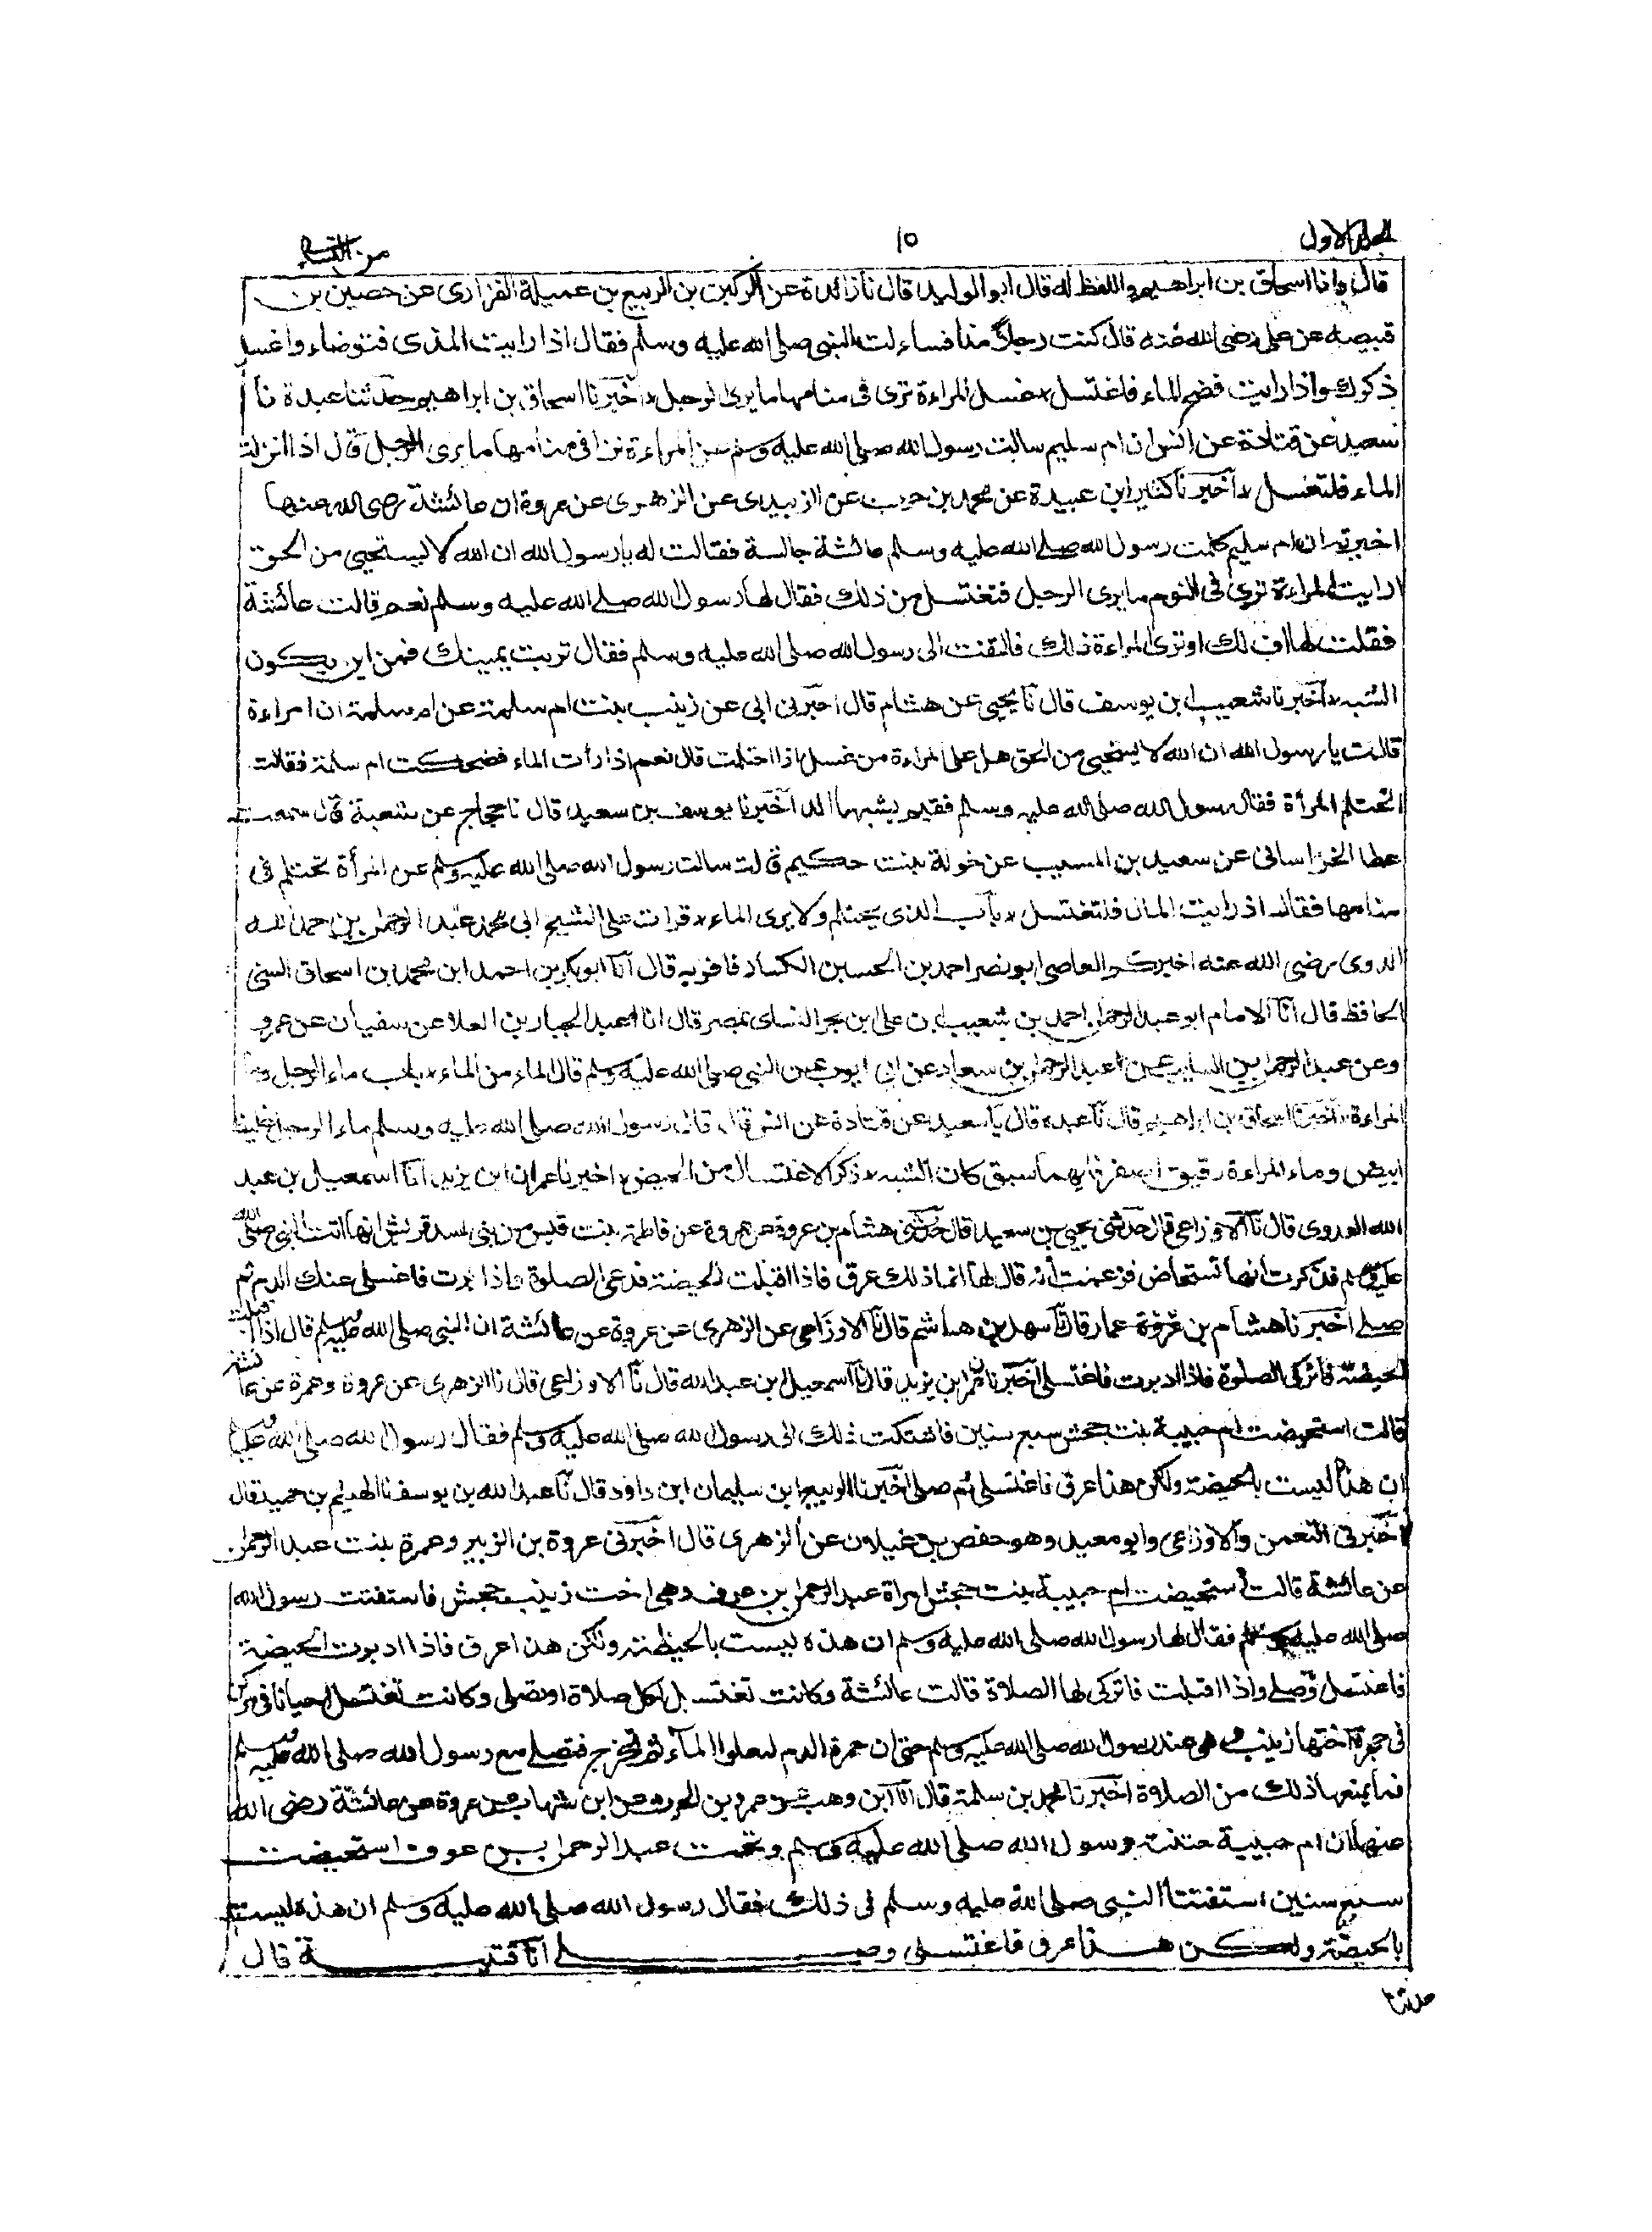 الجلد الاول
١٥
من النسائي
قال وانا اسحاق بن ابراهيم واللفظ له قال ابو الوليد قال نا زائدة عن الركين بن الربيع بن عميلة الفزارى عن حصين بن
قبيصه عن على رضى الله عنه قال كنت رجلا مذا فساءلت النبى صلى الله عليه وسلم فقال اذا رايت المذى فتوضاء واغسل
ذكرك واذا رايت فضخ الماء فاغتسل غسل المراءة ترى فى منامها ما يرى الرجل اخبرنا اسحاق بن ابراهيم حدثنا عبدة نا
سعيد عن قتادة عن انس ان ام سليم سالت رسول الله صلى الله عليه وسلم عن المراءة ترا فى منامها ما يرى الرجل قال اذا انزلت
الماء فلتغسل اخبرنا كثير ابن عبيدة عن محمد بن حرب عن الزبيدى عن الزهرى عن عروة ان عائشة رضى الله عنها
اخبرته ان ام سليم كلمت رسول الله صلى الله عليه وسلم عائشة جالسة فقالت له يا رسول الله ان الله لا يستحيى من الحق
ارايت المراءة ترى فى النوم ما يرى الرجل فتغتسل من ذلك فقال لها رسول الله صلى الله عليه وسلم نعم قالت عائشة
فقلت لها اف لك اوترى المراءة ذلك فالتفت الى رسول الله صلى الله عليه وسلم فقال تربت يمينك فمن اين يكون
الشبه اخبرنا شعيب ابن يوسف قال نا يحيى عن هشام قال اخبرنى ابى عن زينب بنت ام سلمة عن ام سلمة ان امراءة
قالت يا رسول الله ان الله لا يستحيى من الحق هل على المراءة من غسل اذا احتلمت قال نعم اذا رأت الماء فضحكت ام سلمة فقالت
اتحتلم المرأة فقال رسول الله صلى الله عليه وسلم ففيم يشبهها الولد اخبرنا يوسف بن سعيد قال نا حجاج عن شعبة قال سمعت
عطا الخراسانى عن سعيد بن المسيب عن خولة بنت حكيم قالت سالت رسول الله صلى الله عليه وسلم عن امرأة تحتلم فى
منامها فقال اذ رايت الما فلتغتسل باب الذى يحتلم ولا يرى الماء قرات على الشيخ ابى محمد عبد الرحمن بن حمد الله
الدوى رضى الله عنه اخبرك القاضى ابو نصر احمد بن الحسين الكسار فاقر به قال انا ابو بكر بن احمد ابن محمد بن اسحاق السنى
الحافظ قال انا الامام ابو عبد الرحمن احمد بن شعيب بن على ابن بحر النساى بمصر قال انا عبد الجبار بن العلا عن سفيان عن عمرو
وعن عبد الرحمن بن السايب عن عبد الرحمن بن سعاد عن ابى ايوب عن النبى صلى الله عليه وسلم قال الماء من الماء باب ماء الرجل وماء
المراءة اخبرنا اسحاق بن ابراهيم قال نا عبده قال نا سعيد عن قتادة عن انس قال قال رسول الله صلى الله عليه وسلم ماء الرجل غليظ
ابيض وماء المراءة رقيق اصفر فايهما سبق كان الشبه ذكر الاغتسال من الحيض اخبرنا عمران ابن يزيد انا اسمعيل بن عبد
الله العدوى قال نا الاوزاعى قال حدثنى يحيى بن سعيد قال حدثنى هشام بن عروة عن عروة عن فاطمة بنت قيس من بنى اسد قريش انها اتت النبى صلى الله
عليه وسلم فذكرت انها تستحاض فزعمت انه قال لها انما ذلك عرق فاذا اقبلت الحيضة فدعى الصلوة واذا ادبرت فاغسلى عنك الدم ثم
صلى اخبرنا هشام بن عمار قال نا سهل بن هاشم قال نا الاوزاعى عن الزهرى عن عروة عن عائشة ان النبى صلى الله عليه وسلم قال اذا اقبلت
الحيضة فاتركى الصلوة فاذا ادبرت فاغتسلى اخبرنا عمران ابن يزيد قال نا اسمعيل ابن عبد الله قال نا الاوزاعى قال نا الزهرى عن عروة وعمرة عن عائشة
قالت استحيضت ام حبيبة بنت جحش سبع سنين فاشتكت ذلك الى رسول الله صلى الله عليه وسلم فقال رسول الله صلى الله عليه وسلم
ان هذا ليست بالحيضة ولكن هذا عرق فاغتسلى ثم صلى اخبرنا الربيع ابن سليمان ابن داود قال نا عبد الله بن يوسف نا الهيثم بن حميد قال
اخبرنى النعمن والاوزاعى وابو معيد وهو حفص بن غيلان عن الزهرى قال اخبرنى عروة بن الزبير وعمرة بنت عبد الرحمن
عن عائشة قالت استحيضت ام حبيبة بنت جحش امراة عبد الرحمن بن عوف وهى اخت زينب جحش فاستفتت رسول الله
صلى الله عليه وسلم فقال لها رسول الله صلى الله عليه وسلم ان هذه ليست بالحيظة ولكن هذا عرق فاذا ادبرت الحيضة
فاغتسلى وصلى واذا اقبلت فاتركى لها الصلاة قالت عائشة وكانت تغتسل لكل صلاة اوتصلى وكانت تغتسل احيانا فى مركن
فى حجرة اختها زينب وهى عند رسول الله صلى الله عليه وسلم حتى ان حمرة الدم لتعلوا الماء ثم تخرج فتصلى مع رسول الله صلى الله عليه وسلم
فما يمنعها ذلك من الصلاة اخبرنا محمد بن سلمة قال انا ابن وهب عن عمرو بن الحرث عن ابن شهاب عن عروة عن عائشة رضى الله
عنها ان ام حبيبة ختنت رسول الله صلى الله عليه وسلم وتحت عبد الرحمن بن عوف استحيضت
سبع سنين استفتتا النبى صلى الله عليه وسلم فى ذلك فقال رسول الله صلى الله عليه وسلم ان هذه ليست
بالحيضة ولكن هذا عرق فاغتسلى وصلى انا قتيبة قال
حدثنا